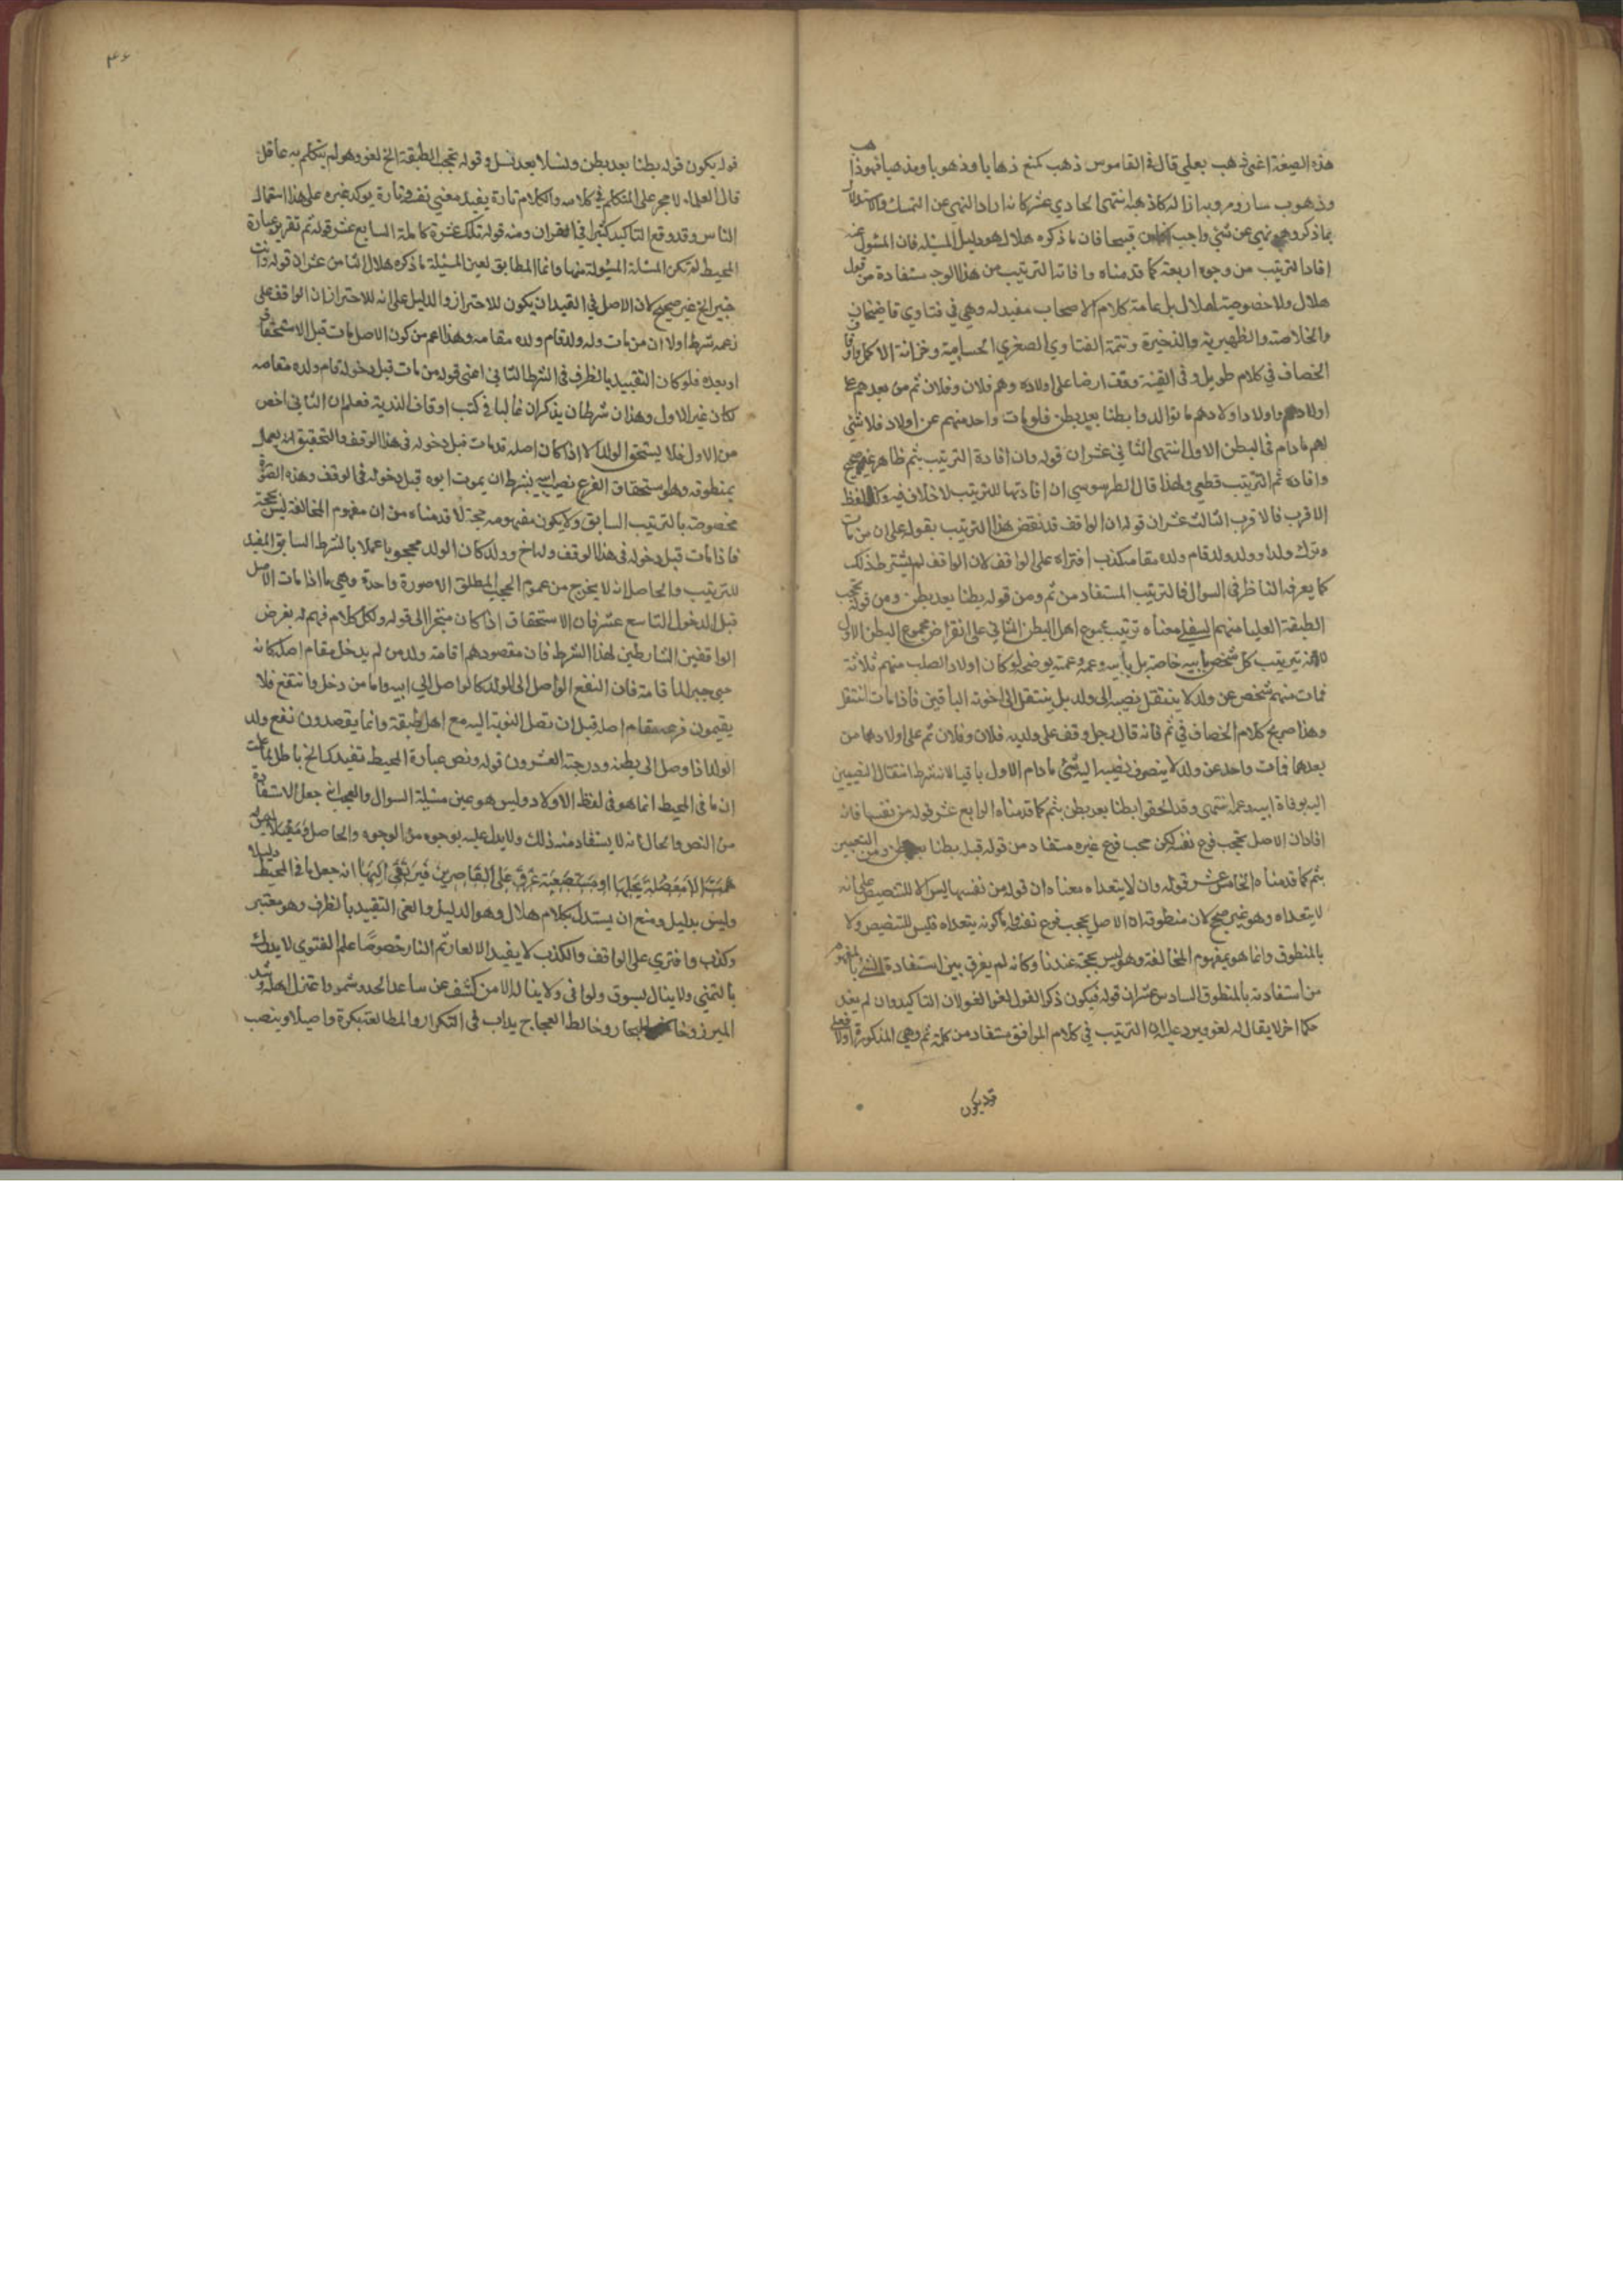 هذه الصيغة اغير ذهب بعلي قال في القاموس ذهب كمنع ذهابا وذهوبا ومذهبا فهو ذاهب
وذهوب سار ومر وبه ازاله كاذهبه انتهى الحادي عشر كانه اراد النهي عن التمسك والاستدلال
بما ذكروه نهي عن شئ واجب قبيحا فان ما ذكره هلال هو دليل المسئلة فان المسئول عنه
افاد الترتيب من وجوه اربعة كما قدمناه وافاته الترتيب من هذا الوجه مستفادة من قول
هلال ولا خصوصية لهلال بل عامة كلام الاصحاب مفيد له وهي في فتاوي قاضيخان
والخلاصة والظهيرية والذخيرة وتتمة الفتاوي الصغري الحسامية وخزانة الاكمل واوقاف
الخصاف في كلام طويل وفي القنية وقف ارضا على اولاده وهم فلان وفلان ثم من بعدهم على
اولادهم واولاد اولادهم ما توالدوا بطنا بعد بطن فلو مات واحد منهم عن اولاد فلا شئ
لهم ما دام في البطن الاول انتهى الثاني عشر ان قوله وان افادة الترتيب بثم ظاهر غير صحيح
وافادة ثم الترتيب قطعي ولهذا قال الطرسوسي ان افادتها للترتيب لا خلاف فيه وكذا لفظ
الاقرب فالاقرب الثالث عشر ان قوله ان الواقف قد نقض هذا الترتيب بقوله على ان من مات
وترك ولدا وولد ولد قام ولده مقامه كذب افتراه على الواقف لان الواقف لم يشترط ذلك
كما يعرفه الناظر في السوال فالترتيب المستفاد من ثم ومن قوله بطنا بعد بطن ومن قوله تحجب
الطبقة العليا منهم السفلى معناه ترتيب مجموع اهل البطن الثاني على انقراض مجموع البطن الاول
لا انه ترتيب كل شخص بابيه خاصة بل بابيه وعمه وعمته يوضحه لو كان اولاد الصلب منهم ثلاثة
فمات منهم شخص عن ولد لا ينتقل نصيبه الى ولده بل ينتقل الى اخوته الباقين فاذا مات انتقل
وهذا صريح كلام الخصاف في ثم فانه قال رجل وقف على ولديه فلان وفلان ثم على اولادهما من
بعدهما فمات واحد عن ولد لا ينصرف نصيبه اليه شئ ما دام الاول باقيا لانه شرط انتقال النصيبين
اليه بوفاة ابيه وعمه انتهى وقد الحقوا بطنا بعد بطن بثم كما قدمناه الرابع عشر قوله من نفسها فانه
افاد ان الاصل يحجب فرع نفسه لكن حجب فرع غيره مستفاد من قوله قبل بطنا بعد بطن ومن التعبير
بثم كما قدمناه الخامس عشر قوله وان لا يتعداه معناه ان قوله من نفسها ليس الا للتنصيص على انه
لا يتعداه وهو غير صحيح لان منطوقه ان الاصل يحجب فرع نفسه واما كونه يتعداه فليس للتنصيص ولا
بالمنطوق وانما هو بمفهوم المخالفة وهو ليس بحجة عندنا وكانه لم يفرق بين استفادة الشئ بالمفهوم
من استفادته بالمنطوق السادس عشر ان قوله فيكون ذكر القول لغوا لغو لان التاكيد وان لم يفد
حكما اخر لا يقال له لغو ويرد عليه ان الترتيب في كلام الواقف مستفاد من كلمة ثم وهي المذكورة اولا فعلى
قد يكون
٤٦
قوله يكون قوله بطنا بعد بطن ونسلا بعد نسل وقوله تحجب الطبقة الخ لغو وهو لم يتكلم به عاقل
قال العلماء لا حجر على المتكلم في كلامه والكلام تارة يفيد معنى نفسه وتارة يوكد غيره على هذا استعمال
الناس وقد وقع التاكيد كثيرا في القران ومنه قوله تلك عشرة كاملة السابع عشر قوله ثم تقرير عبارة
المحيط لم تكن المسئلة المسئولة منها وانما المطابق لعين المسئلة ما ذكره هلال الثامن عشر ان قوله وانت
خبير الخ غير صحيح لان الاصل في القيد ان يكون للاحتراز والدليل على انه للاحتراز ان الواقف على
زعمه شرط اولا ان من مات وله ولد قام ولده مقامه وهذا اعم من كون الاصل مات قبل الاستحقاق
او بعده فلو كان التقييد بالظرف في الشرط الثاني اعني قوله من مات قبل دخوله قام ولده مقامه
كان غير الاول وهذان شرطان يذكران غالبا في كتب اوقاف الذرية فعلم ان الثاني اخص
من الاول فلا يستحق الولد الا اذا كان اصله قد مات قبل دخوله في هذا الوقف والتحقيق انه يعمل
بمنطوقه وهو استحقاق الفرع نصيب ابيه بشرط ان يموت ابوه قبل دخوله في الوقف وهذه الصورة
مخصوصة بالترتيب السابق ولا يكون مفهومه حجة لما قدمناه من ان مفهوم المخالفة ليس بحجة
فاذا مات قبل دخوله في هذا الوقف وله اخ وولد كان الولد محجوبا عملا بالشرط السابق المفيد
للترتيب والحاصل انه لا يخرج من عموم الحجب المطلق الا صورة واحدة وهي ما اذا مات الاصل
قبل الدخول التاسع عشر فان الاستحقاق اذا كان منجزا الى قوله ولكل كلام فهم له بغرض
الواقفين الشارطين لهذا الشرط فان مقصودهم اقامة ولد من لم يدخل مقام اصله كانه
حي جبرا لما قامة فان النفع الواصل الى الولد كالواصل الى ابيه واما من دخل وانتفع فلا
يقيمون فرعه مقام اصله قبل ان تصل النوبة اليه مع اهل طبقة وانما يقصدون نفع ولد
الولد اذا وصل الى بطنه ودرجته العشرون قوله ونص عبارة المحيط تفيد كالخ باطل لما علمت
ان ما في المحيط انما هو في لفظ الاولاد وليس هو عين مسئلة السوال والعجب انه جعل الاستفادة
من النص والحال انه لا يستفاد منه ذلك ولا يدل عليه بوجه من الوجوه والحاصل
على القاصرين فيرتقي اليها انه جعل ما في المحيط دليلا
وليس بدليل ومنع ان يستدل بكلام هلال وهو الدليل والغى التقييد بالظرف وهو معتبر
وكذب وافترى على الواقف والكذب لا يفيد الا العار ثم النار خصوصا علم الفتوى لا يدرك
بالتمني ولا ينال بسوف ولو اني ولا يناله الا من كشف عن ساعد الجد وشمر واعتزل اهله وشد
الميزر وخاض البحار وخالط العجاج يداب في التكرار والمطالعة بكرة واصيلا وينصب